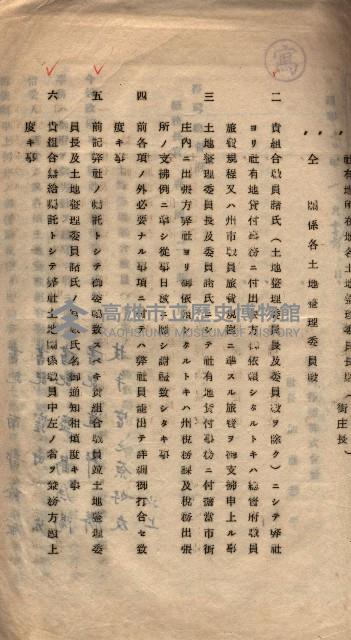 寫
社有地所在地各土地整理委員長 (街庄長)
〃 仝 關係各土地整理委員殿
二 貴組合職員諸氏(土地整理委員長及委員殿ヲ除ク)ニシテ弊社
ヨリ社有地貸付事務ニ付出張方御依賴シタルトキハ總督府職員
旅費規程又ハ州市職員旅費規程ニ準スル旅費ヲ御支拂申上ル事
三 土地整理委員長及委員諸氏ニシテ社有地貸付事務ニ付擔當市街
庄內ニ出張方弊社ヨリ御依賴シタルトキハ州稅務課及稅務出張
所ノ支拂例ニ準シ從事日數ニ應シ謝禮致シタキ事
四 前各項ノ外必要ナル事項ニ付テハ弊社員罷出テ詳細御打合セ致
度キ事
五 前記弊社ノ囑託トシテ御委囑致スヘキ貴組合職員竝土地整理委
員長及土地整理委員諸氏ノ職氏名御通知相煩度キ事
六 貴組合無給囑託トシテ弊社土地關係職員中左ノ者ヲ兼務方願上
度キ事
高雄市立歷史博物館
KAOHSIUNG MUSEUM OF HISTORY